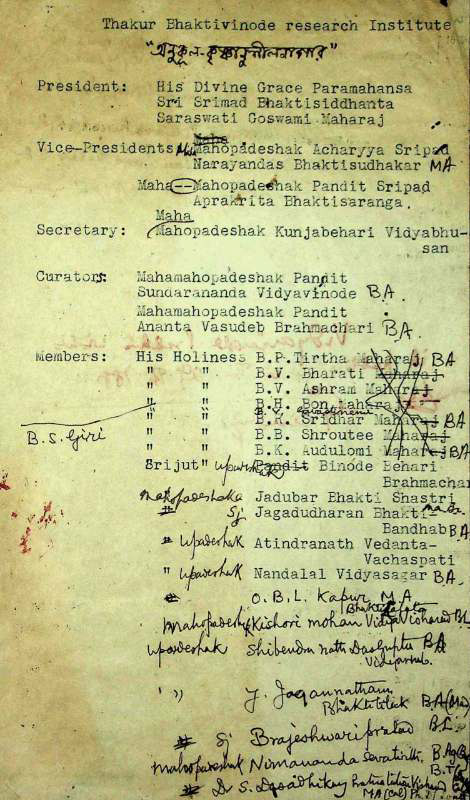 Thakur Bhaktivinode research Institute
"অনুকূল-কৃষ্ণানুশীলনাগার"
President: His Divine Grace Paramahansa
Sri Srimad Bhaktisiddhanta
Saraswati Goswami Maharaj
Maha
Vice-Presidents Mahopadeshak Acharyya Sripad
Narayandas Bhaktisudhakar MA
Maha--Mahopadeshak Pandit Sripad
Aprakrita Bhaktisaranga.
Maha
Secretary: Mahopadeshak Kunjabehari Vidyabhu-
san
Curators: Mahamahopadeshak Pandit
Sundarananda Vidyavinode BA.
Mahamahopadeshak Pandit
Ananta Vasudeb Brahmachari BA
Members: His Holiness B.P.Tirtha Maharaj BA
" " B.V. Bharati Maharaj
" " B.V. Ashram Maharaj
" " B.H. Bon Maharaj
B.S. Giri
" " B.R. Sridhar Maharaj BA
" " B.B. Shroutee Maharaj
" " B.K. Audulomi Maharaj BA
Srijut Pandit Binode Behari
Brahmachar
Mahopadeshaka Jadubar Bhakti Shastri
" Sj Jagadudharan Bhakti-
Bandhab BA
" Upadeshak Atindranath Vedanta-
Vachaspati
" Upadeshak Nandalal Vidyasagar BA.
O.B.L. Kapur M.A
Mahopadeshak Kishori mohan BL
Upadeshak Shibendu nath DasGupta BA
" ") J. Jagannatham
Bhaktitilak BA
Sj Brajeshwari prasad BL
Mahopadeshak Nimananda Sevatirtha B.Ag
B.T
Dr S.
MA(Cal)